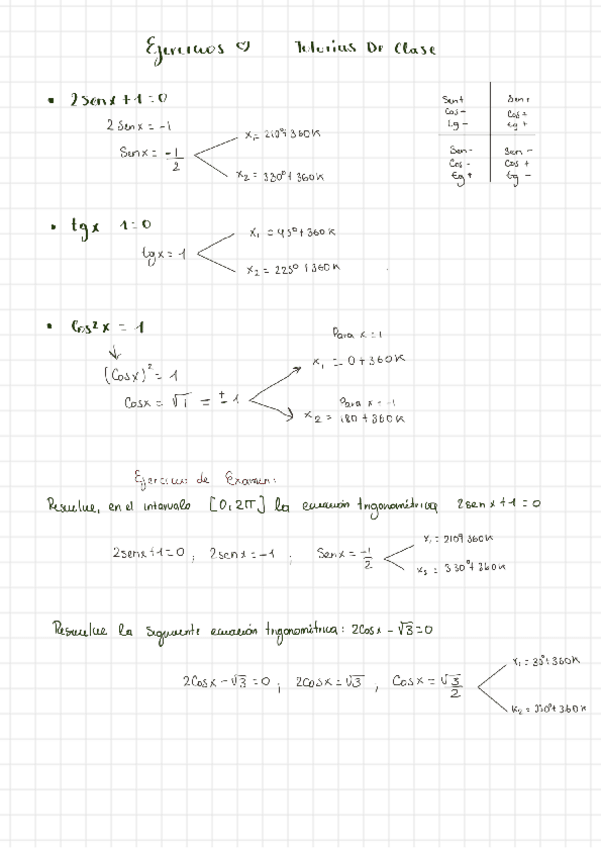 Ejercicios ♡ Tutorias De Clase
• 2senx + 1 = 0
2 Senx = -1
Senx = -1/2
x₁ = 210º + 360K
x₂ = 330º + 360K
Sen+ Sen+
Cos- Cos+
tg- tg+
Sen- Sen-
Cos- Cos+
tg+ tg-
• tgx 1 = 0
tgx = 1
x₁ = 45º + 360K
x₂ = 225º + 360K
• Cos²x = 1
(Cosx)² = 1
Cosx = √1 = ±1
Para x = 1
x₁ = 0 + 360K
Para x = -1
x₂ = 180 + 360K
Ejercicios de Examen:
Resuelve, en el intervalo [0, 2π] la ecuación trigonométrica 2senx + 1 = 0
2senx + 1 = 0 ; 2senx = -1 ; Senx = -1/2
x₁ = 210º 360K
x₂ = 330º + 360K
Resuelve la siguiente ecuación trigonométrica: 2Cosx - √3 = 0
2Cosx - √3 = 0 ; 2Cosx = √3 , Cosx = √3/2
x₁ = 30º + 360K
x₂ = 330º + 360K